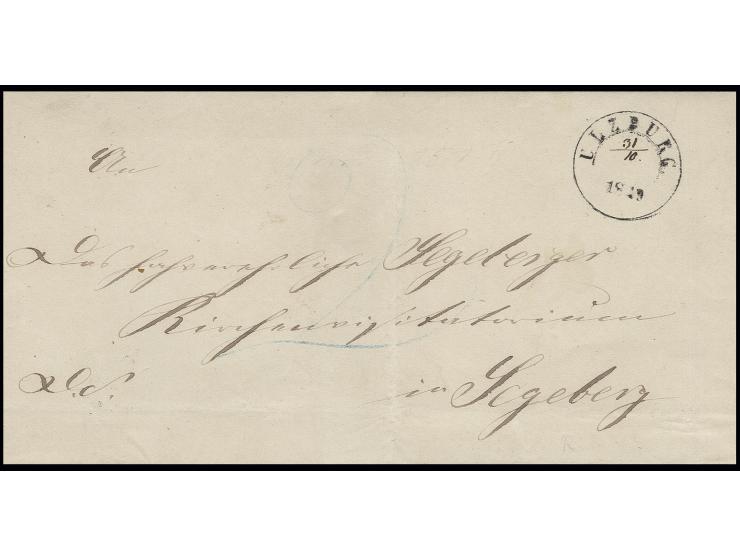 ULZBURG
31/10.
An
Das hochverehrliche Segeberger
Kirchenvisitatorium
D.S. in Segeberg